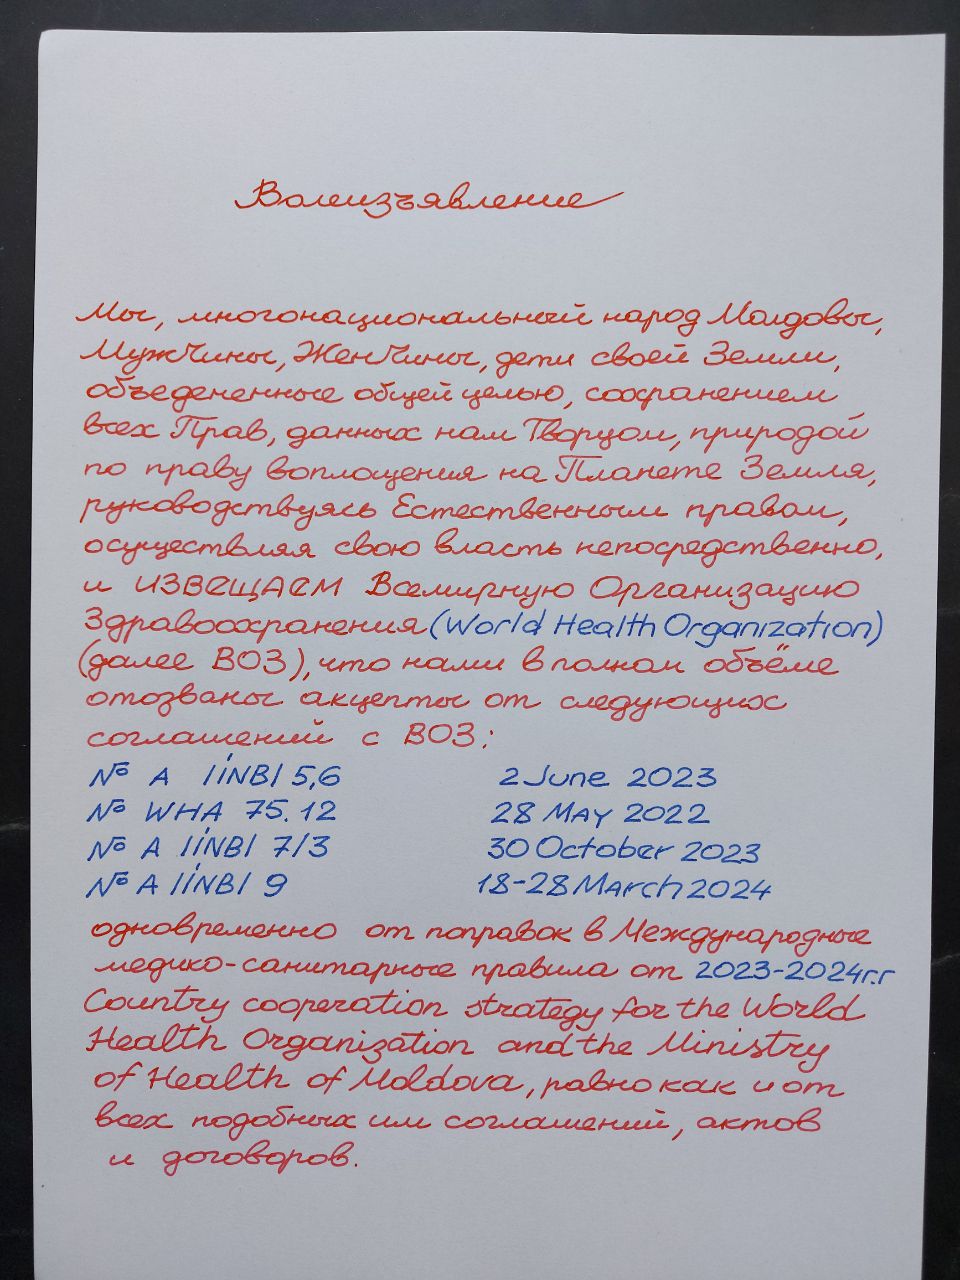 Волеизъявление
Мы, многонациональный народ Молдовы,
МужЧины, ЖенЧины, дети своей Земли,
объедененные общей целью, сохранением
всех Прав, данных нам Творцом, природой
по праву воплощения на Планете Земля,
руководствуясь Естественным правом,
осуществляя свою власть непосредственно,
и ИЗВЕЩАЕМ Всемирную Организацию
Здравоохранения (World Health Organization)
(далее ВОЗ), что нами в полном объёме
отозваны акцепты от следующих
соглашений с ВОЗ:
№ A /iNB/ 5,6 2 June 2023
№ WHA 75.12 28 May 2022
№ A /iNB/ 7/3 30 October 2023
№ A /iNB/ 9 18-28 March 2024
одновременно от поправок в Международные
медико-санитарные правила от 2023-2024г.г
Country cooperation strategy for the World
Health Organization and the Ministry
of Health of Moldova, равно как и от
всех подобных им соглашений, актов
и договоров.